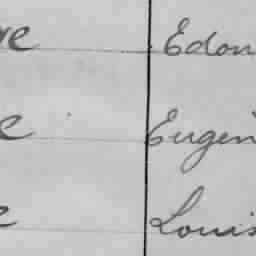 re Edou
e Eugèn
e Louis